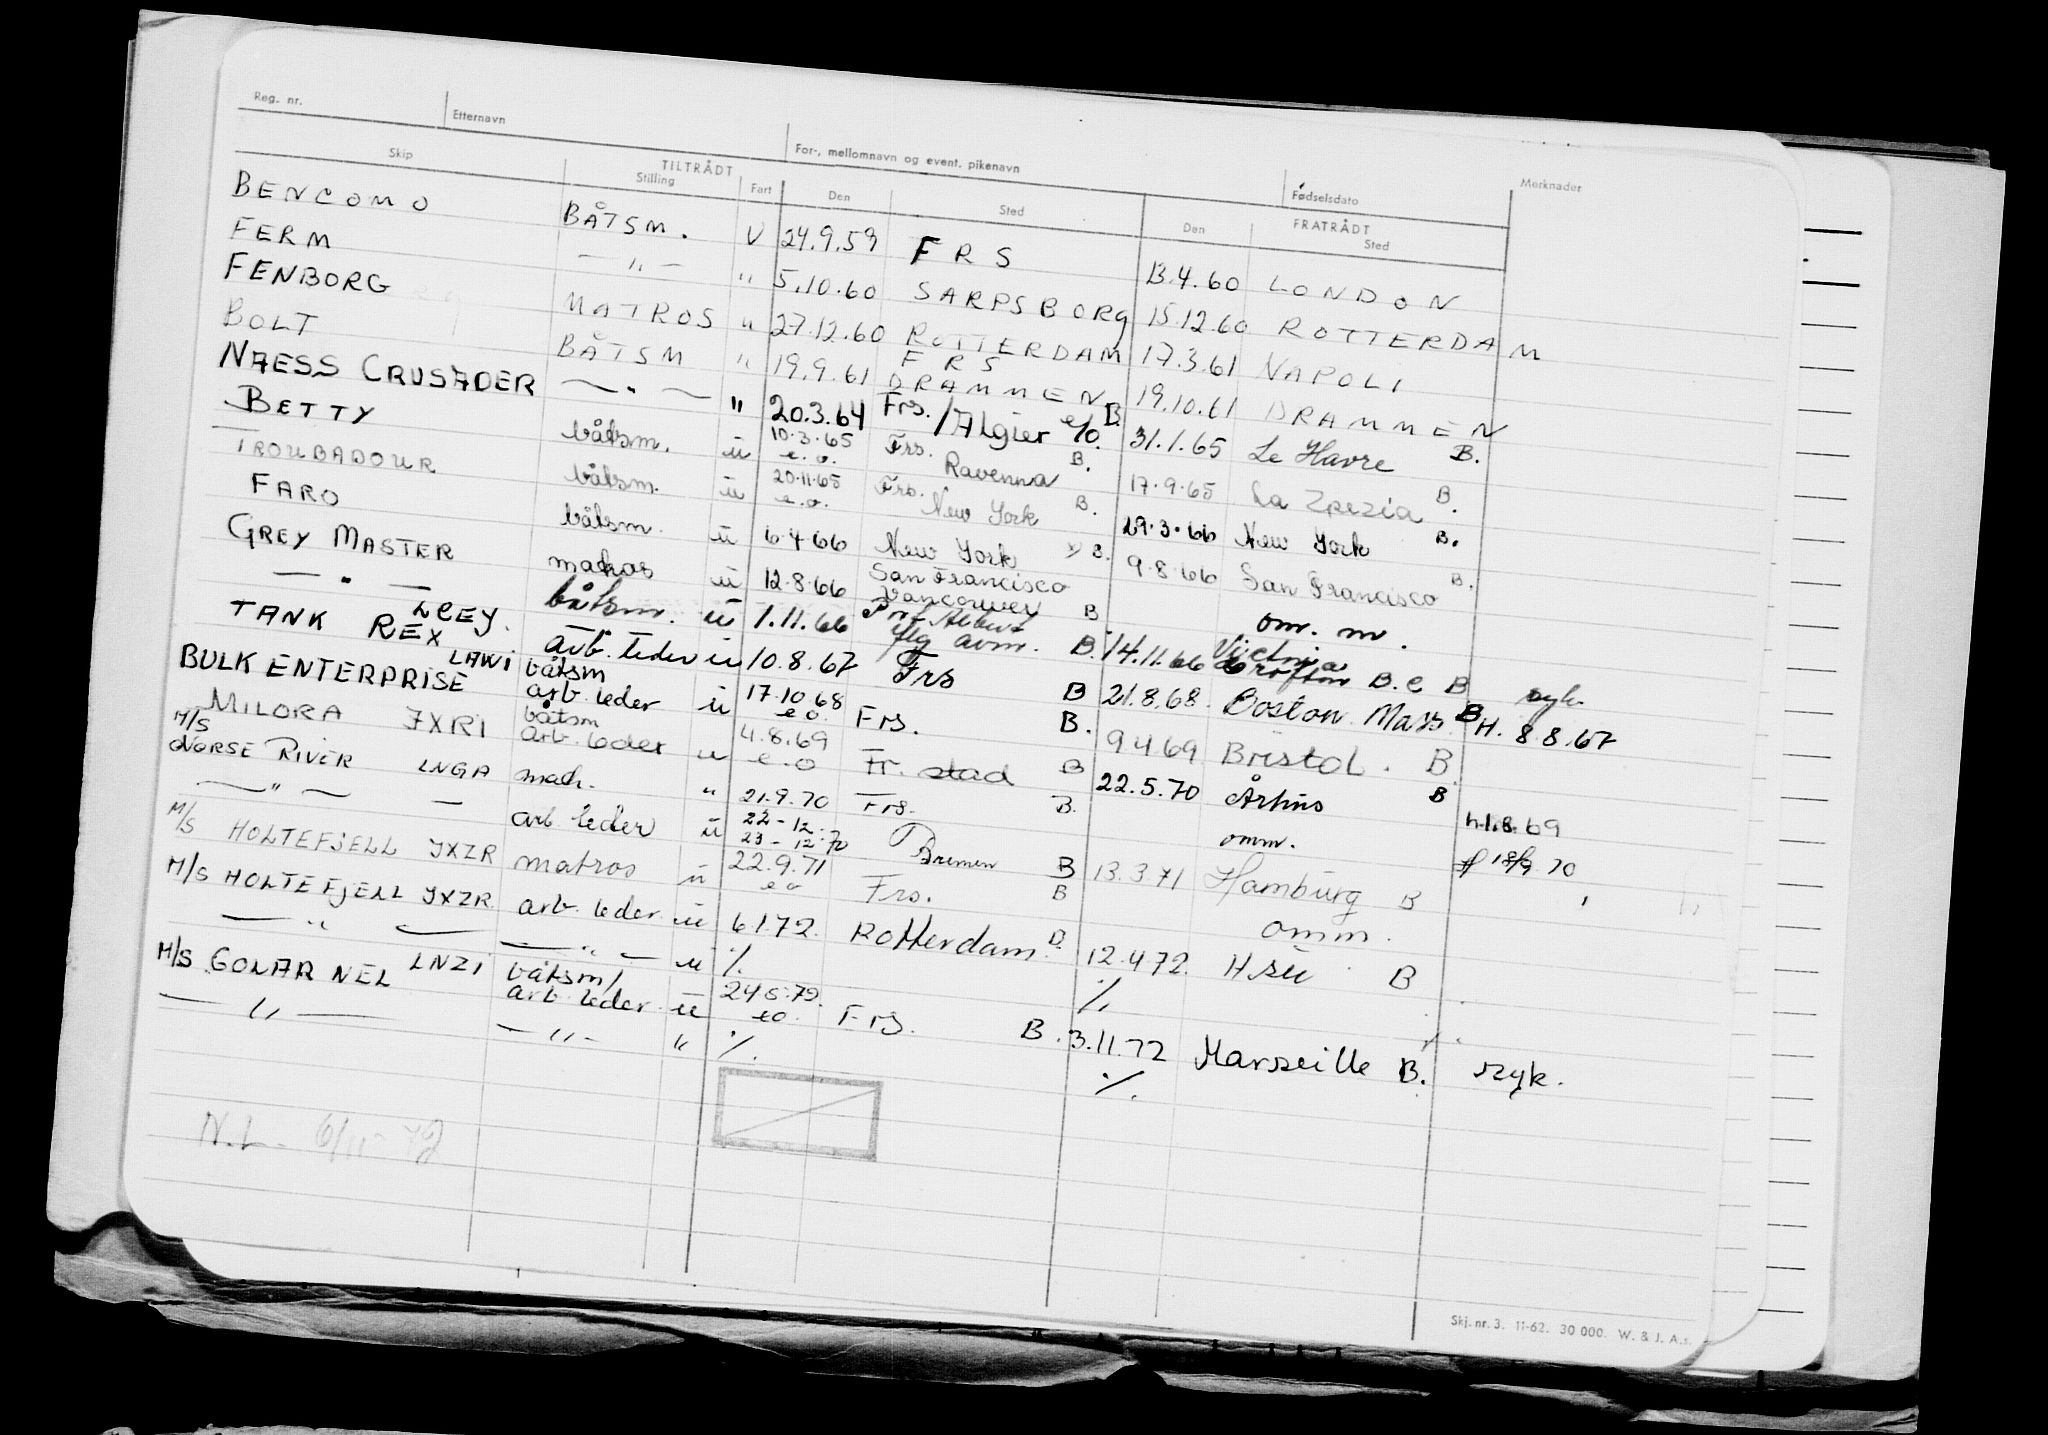 Reg. nr. Etternavn For-, mellomnavn og event. pikenavn Fødselsdato Merknader
TILTRÅDT FRATRÅDT
Skip Stilling Fart Den Sted Den Sted
BENCOMO BÅTSM. V 24.9.59 FRS 13.4.60 LONDON
FERM —"— " 5.10.60 SARPSBORG 15.12.60 ROTTERDAM
FENBORG MATROS " 27.12.60 ROTTERDAM 17.3.61 NAPOLI
BOLT BÅTSM " 19.9.61 FRS DRAMMEN 19.10.61 DRAMMEN
NAESS CRUSADER —"— " 20.3.64 Frs. / Algier e/o. B. 31.1.65 Le Havre B.
BETTY båtsm. u 10.3.65 e.o. Frs. Ravenna B. 17.9.65 La Zpezia B.
TROUBADOUR båtsm. u 20.11.65 e.o. Frs. New York B. 29.3.66 New York B.
FARO båtsm. u 6.4.66 New York B. 9.8.66 San Francisco B.
GREY MASTER matros u 12.8.66 San Francisco Vancouver B om. m.
—"— LCEY. båtsm. u 1.11.66 Port Alberni flg avm. B. 14.11.66 Victoria Crofton B.C B syk.
TANK REX LAWI arb. leder u 10.8.67 Frs B 21.8.68. Boston Mass B H. 8.8.67
BULK ENTERPRISE båtsm arb. leder u 17.10.68 e.o. Frs. B. 9.4.69 Bristol. B.
MILORA JXRI båtsm arb. leder u 4.8.69 e.o Fr. stad B 22.5.70 Århus B h.1.8.69
M/S NORSE RIVER LNGA matr. " 21.9.70 Frs. B. omm. 18/9 70
—"— — arb leder u 22-12: 23-12:70 Bremen B 13.3.71 Hamburg B
M/S HOLTEFJELL JXZR matros u 22.9.71 eo Frs. B omm.
M/S HOLTEFJELL JXZR. arb. leder u 6.1.72. Rotterdam B. 12.4.72. H.su B
—"— — —"— u ./. ./.
M/S GOLAR NEL LNZI båtsm/ arb. leder. u 24.5.72. eo. Frs. B. 3.11.72 Marseille B. szyk.
—"— —"— " ./. ./.
N.L. 6/11-72
Skj. nr. 3. 11-62. 30 000. W. & J. A.s.